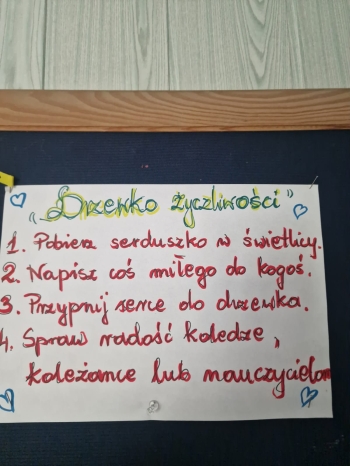 „Drzewko życzliwości"
1. Pobierz serduszko w świetlicy.
2. Napisz coś miłego do kogoś.
3. Przypnij serce do drzewka.
4. Spraw radość koledze,
koleżance lub nauczycielom